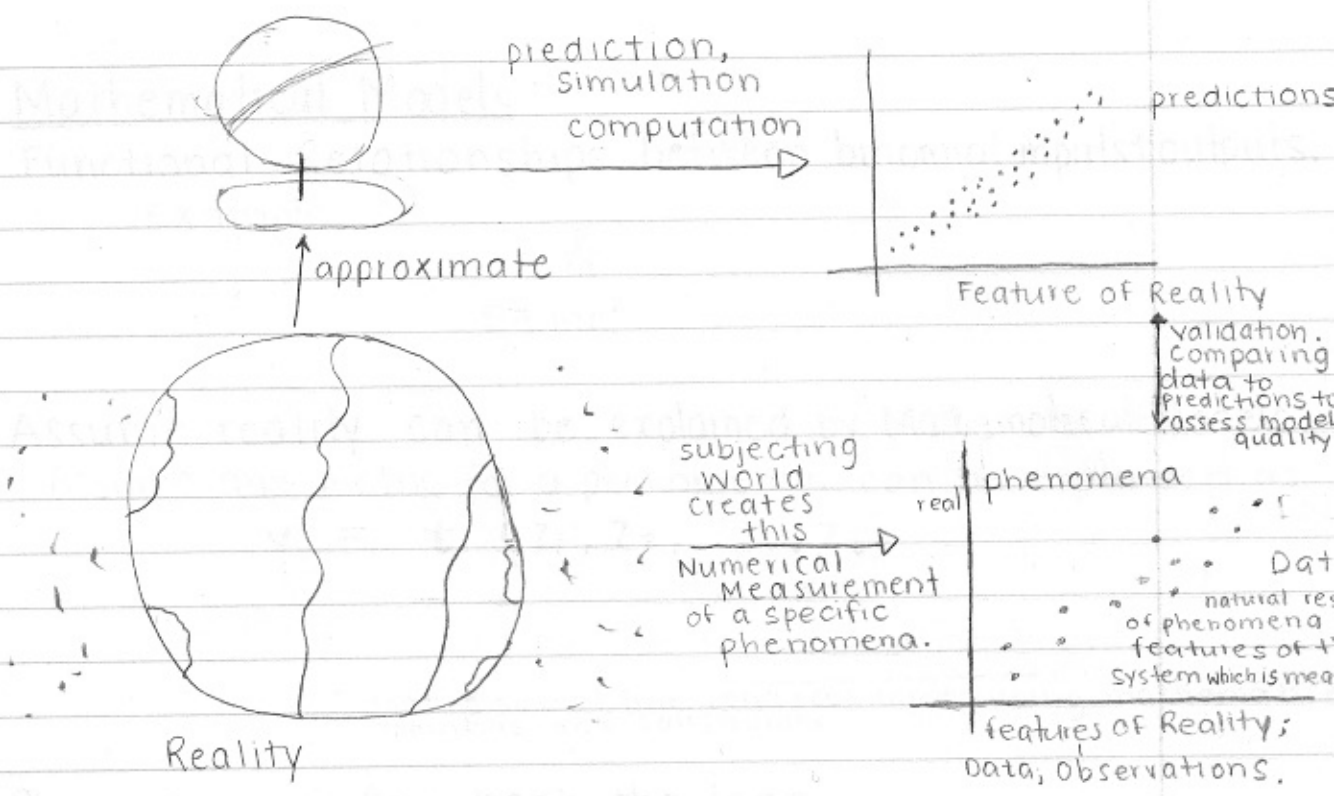 prediction,
Simulation
computation
predictions
Feature of Reality
approximate
validation.
Comparing
data to
predictions to
assess model
quality
subjecting
world
creates
this
Numerical
Measurement
of a specific
phenomena.
real phenomena
Dat
natural res
of phenomena
features of t
system which is mea
features of Reality;
Data, Observations.
Reality